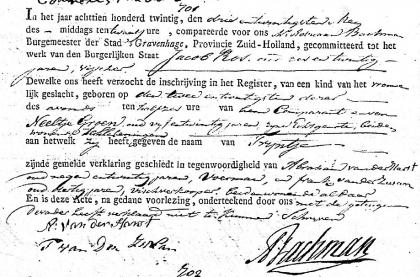 201
In het jaar achttien honderd twintig, den drie en twintigsten Mey
des - middags ten twaalf ure, compareerde voor ons Mr. Bachman
Burgemeester der Stad 's Gravenhage, Provincie Zuid-Holland, gecommitteerd tot het
werk van den Burgelijken Staet Jacob Ros, oud zes en twintig
jaren, visscher
Dewelke ons heeft verzocht de inschrijving in het Register, van een kind van het vrouwe
lijk geslacht, geboren op den twee en twintigsten dezer
des avonds ten ure van hem Comparant en van
Neeltje oud vijf en twintig jaren, zijn Echtgenote, beiden
wonende te Scheveningen
aan hetwelk zij heeft gegeven de naam van Trijntje
zijnde gemelde verklaring geschiedt in tegenwoordigheid van Abraham van der Harst
oud negen en twintig jaren, Voerman, en van der Zwan
oud jaren, vischverkooper, beiden wonende aldaar
En is deze Acte, na gedane voorlezing, onderteekend door ons met de getuigen
heeft verklaard niet te kunnen Schrijven
A. van der Harst
van Der Zwan
Bachman
202